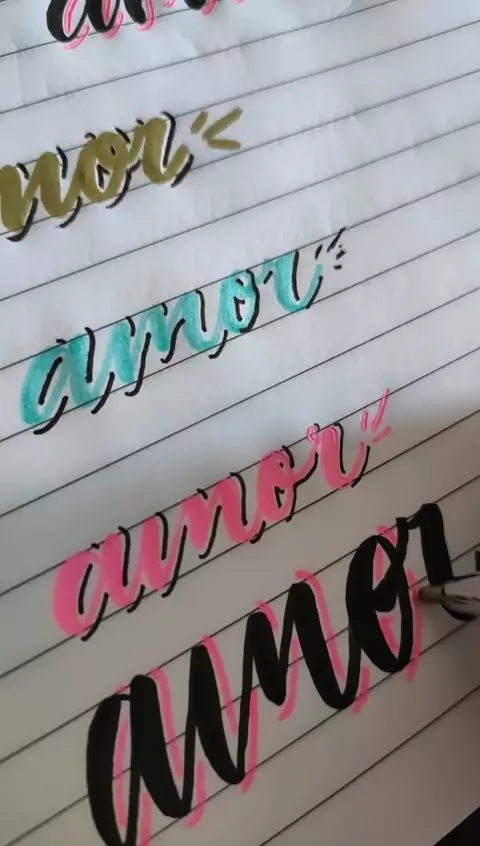 mor
amor
amor
amor